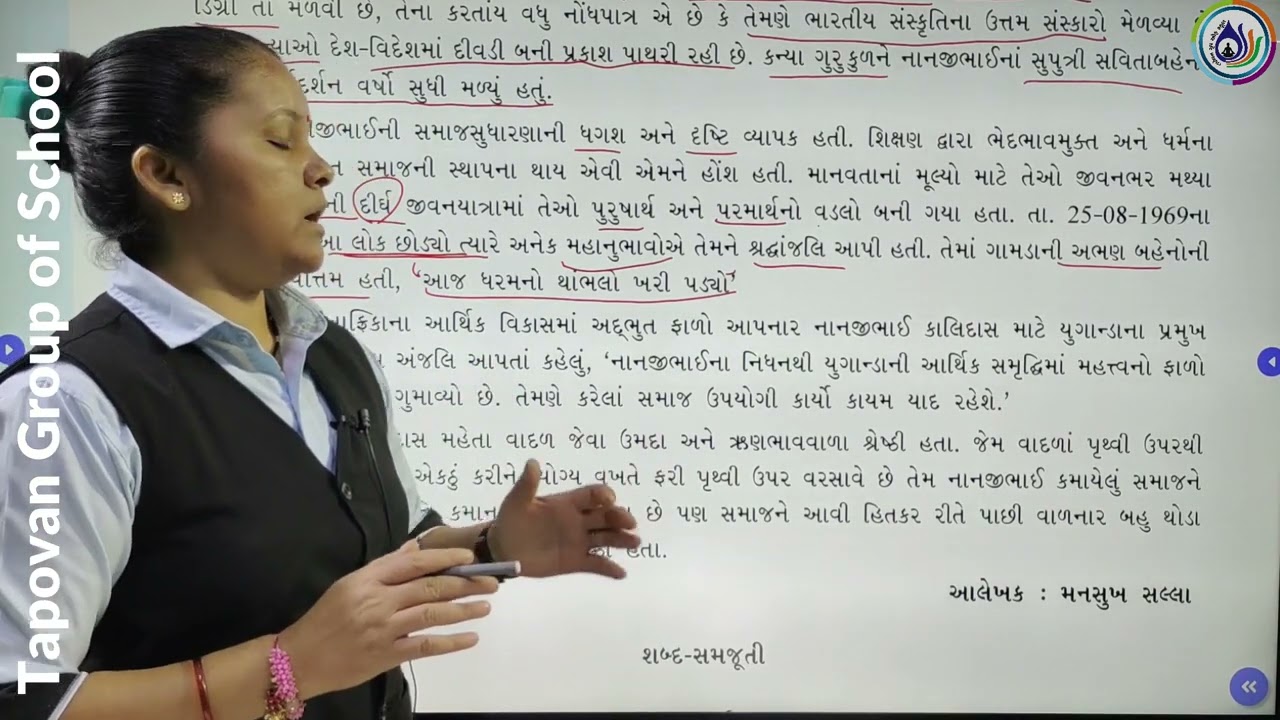 Tapovan Group of School
ડિગ્રી તો મેળવી છે, તેના કરતાંય વધુ નોંધપાત્ર એ છે કે તેમણે ભારતીય સંસ્કૃતિના ઉત્તમ સંસ્કારો મેળવ્યા
દેશ-વિદેશમાં દીવડી બની પ્રકાશ પાથરી રહી છે. કન્યા ગુરુકુળને નાનજીભાઈનાં સુપુત્રી સવિતાબહેન
દર્શન વર્ષો સુધી મળ્યું હતું.
સમાજસુધારણાની ધગશ અને દૃષ્ટિ વ્યાપક હતી. શિક્ષણ દ્વારા ભેદભાવમુક્ત અને ધર્મના
સમાજની સ્થાપના થાય એવી એમને હોંશ હતી. માનવતાનાં મૂલ્યો માટે તેઓ જીવનભર મથ્યા
ની દીર્ઘ જીવનયાત્રામાં તેઓ પુરુષાર્થ અને પરમાર્થનો વડલો બની ગયા હતા. તા. 25-08-1969ના
આ લોક છોડ્યો ત્યારે અનેક મહાનુભાવોએ તેમને શ્રદ્ધાંજલિ આપી હતી. તેમાં ગામડાની અભણ બહેનોની
હતી, ‘આજ ધરમનો થાંભલો ખરી પડ્યો’
આફ્રિકાના આર્થિક વિકાસમાં અદ્ભુત ફાળો આપનાર નાનજીભાઈ કાલિદાસ માટે યુગાન્ડાના પ્રમુખ
અંજલિ આપતાં કહેલું, ‘નાનજીભાઈના નિધનથી યુગાન્ડાની આર્થિક સમૃદ્ધિમાં મહત્ત્વનો ફાળો
ગુમાવ્યો છે. તેમણે કરેલાં સમાજ ઉપયોગી કાર્યો કાયમ યાદ રહેશે.’
મહેતા વાદળ જેવા ઉમદા અને ઋણભાવવાળા શ્રેષ્ઠી હતા. જેમ વાદળાં પૃથ્વી ઉપરથી
એકઠું કરીને યોગ્ય વખતે ફરી પૃથ્વી ઉપર વરસાવે છે તેમ નાનજીભાઈ કમાયેલું સમાજને
છે પણ સમાજને આવી હિતકર રીતે પાછી વાળનાર બહુ થોડા
હતા.
આલેખક : મનસુખ સલ્લા
શબ્દ-સમજૂતી